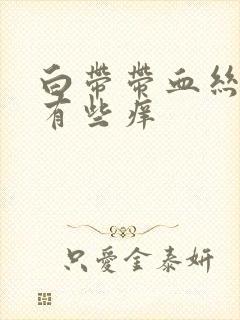 白帶帶血絲
有些痒
只愛金泰妍